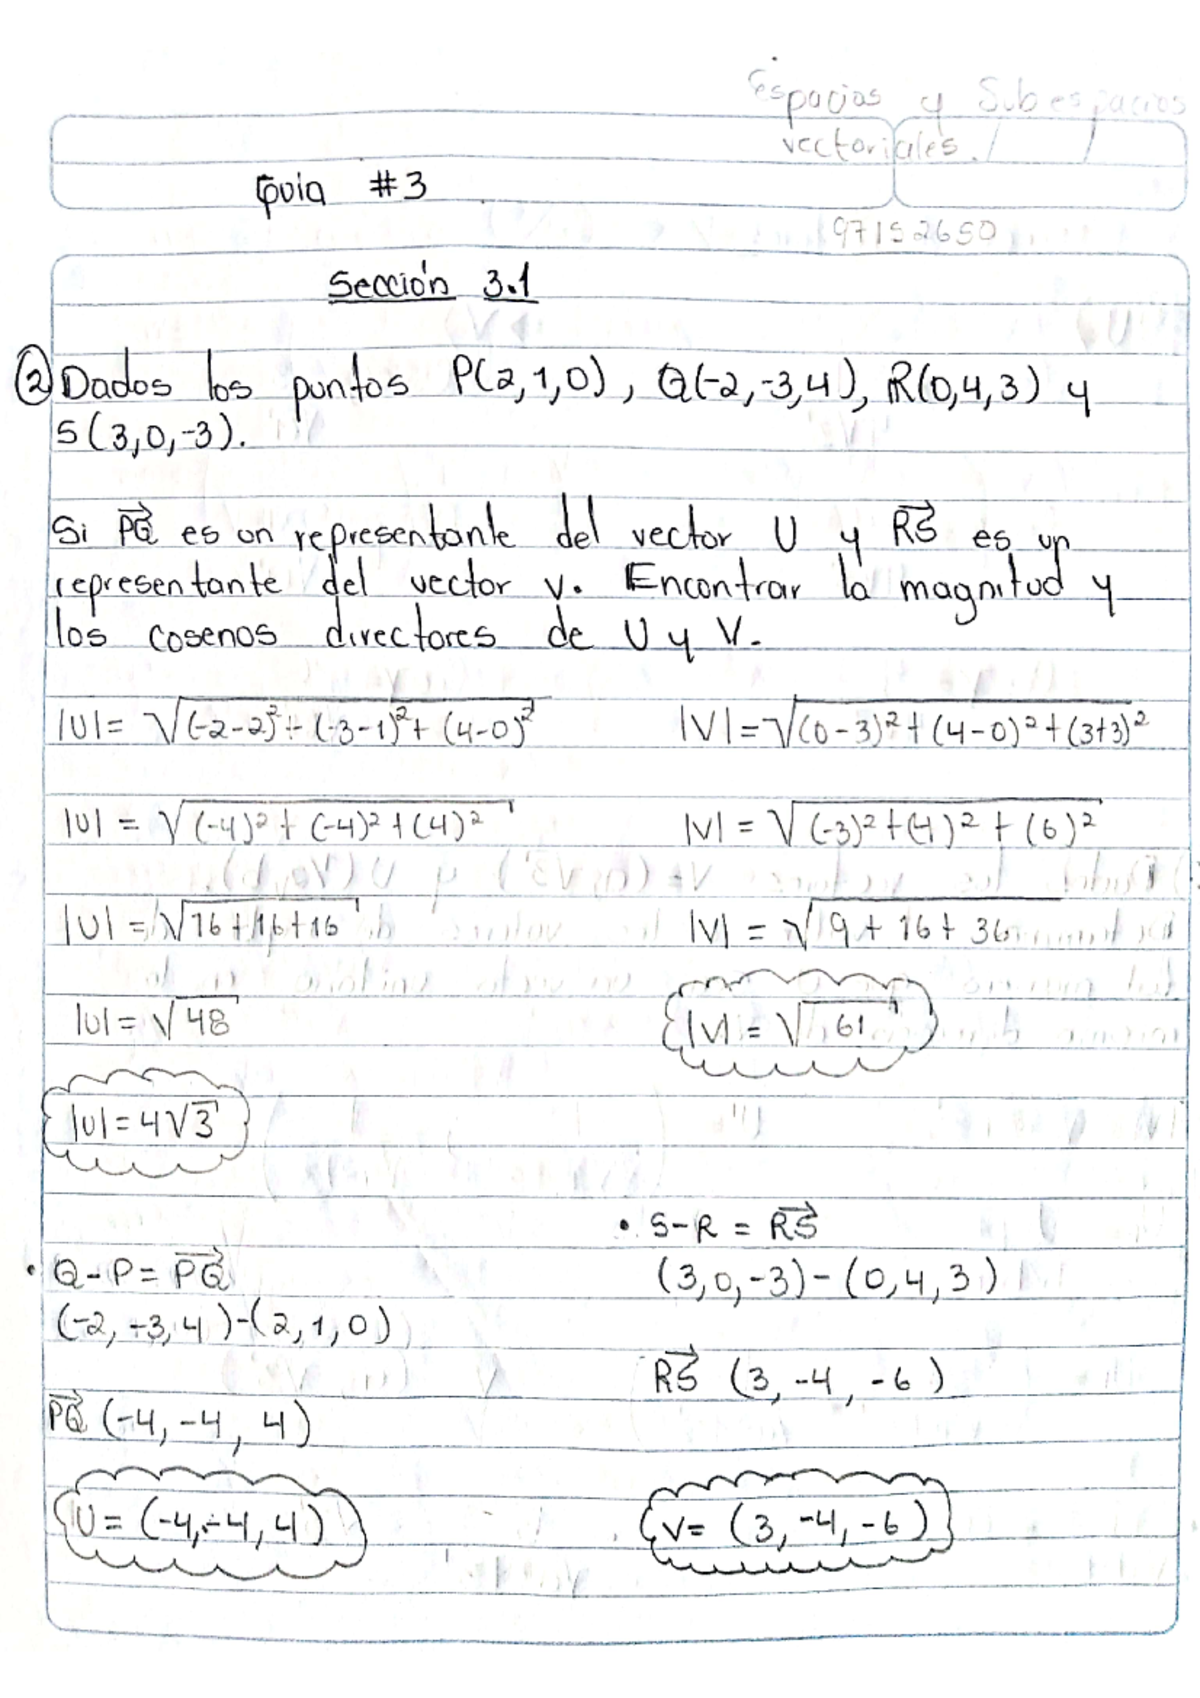 Espacios y Subespacios
vectoriales. / /
Guia #3
97152650
Sección 3.1
② Dados los puntos P(2,1,0), Q(-2,-3,4), R(0,4,3) y
S(3,0,-3).
Si PQ⃗ es un representante del vector U y RS⃗ es un
representante del vector v. Encontrar la magnitud y
los cosenos directores de U y V.
|U| = √(-2-2)² + (-3-1)² + (4-0)²
|V| = √(0-3)² + (4-0)² + (3+3)²
|U| = √(-4)² + (-4)² + (4)²
|V| = √(-3)² + (4)² + (6)²
|U| = √16+16+16
|V| = √9+16+36
|U| = √48
|V| = √61
|U| = 4√3
• S-R = RS⃗
• Q-P = PQ⃗
(3,0,-3)-(0,4,3)
(-2,-3,4)-(2,1,0)
RS⃗ (3,-4,-6)
PQ⃗ (-4,-4,4)
U = (-4,-4,4)
V = (3,-4,-6)